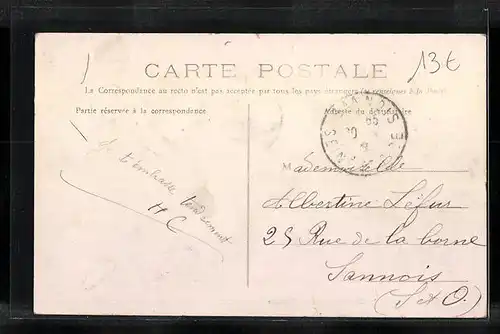 13€
CARTE POSTALE
La Correspondance au recto n'est pas acceptée par tous les pays étrangers (se renseigner à la Poste)
Partie réservée à la correspondance
Adresse du destinataire
SANNOIS
Mademoiselle
Je t'embrasse tendrement
H C
Albertine Léfur
25 Rue de la borne
Sannois
(S & O)